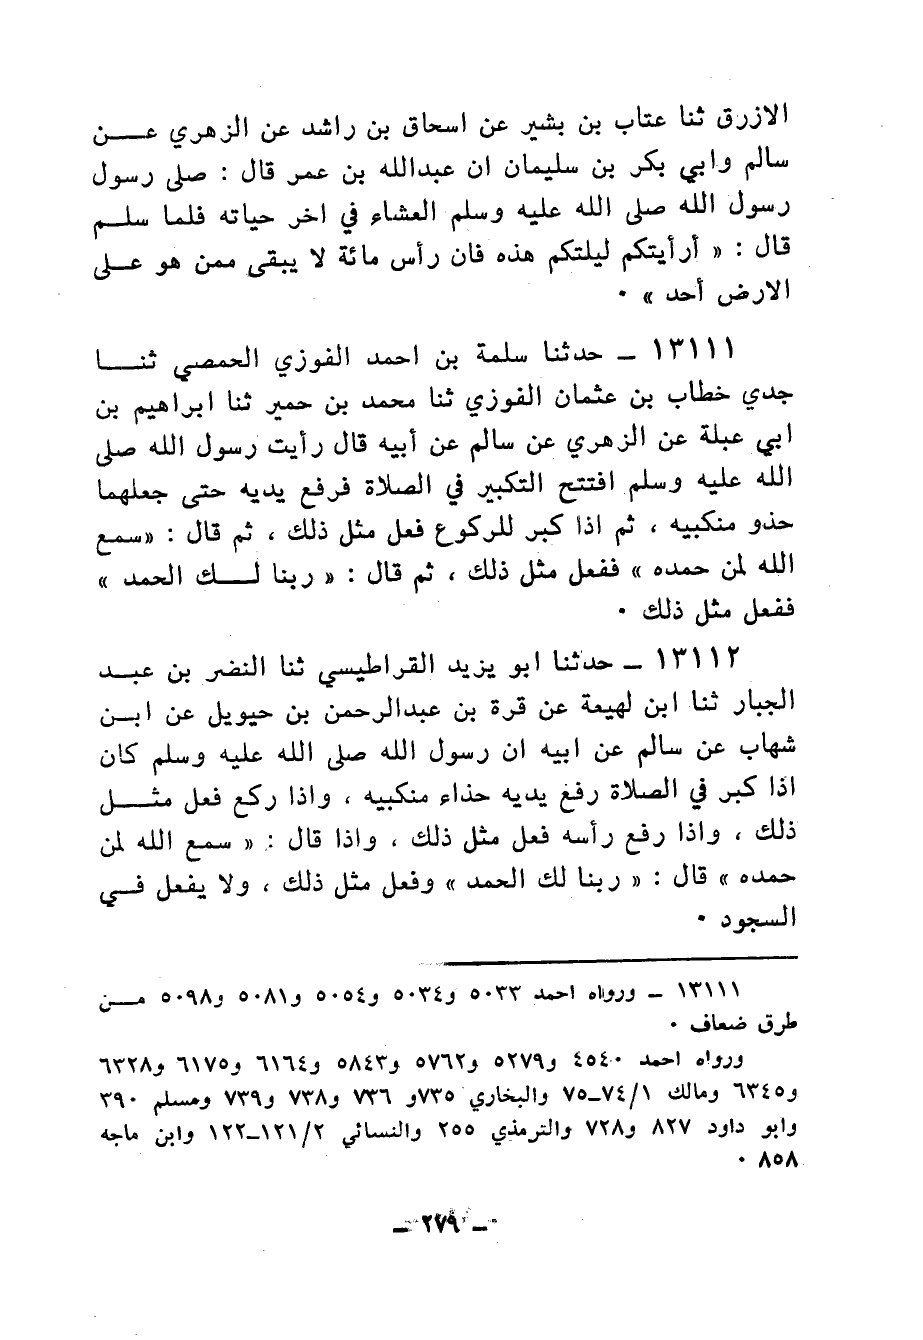 الازرق ثنا عتاب بن بشير عن اسحاق بن راشد عن الزهري عـــن
سالم وابي بكر بن سليمان ان عبدالله بن عمر قال : صلى رسول
رسول الله صلى الله عليه وسلم العشاء في اخر حياته فلما سلــم
قال : « أرأيتكم ليلتكم هذه فان رأس مائة لا يبقى ممن هو علــى
الارض أحد » ٠
١٣١١١ ــ حدثنا سلمة بن احمد الفوزي الحمصي ثنــا
جدي خطاب بن عثمان الفوزي ثنا محمد بن حمير ثنا ابراهيم بن
ابي عبلة عن الزهري عن سالم عن أبيه قال رأيت رسول الله صلى
الله عليه وسلم افتتح التكبير في الصلاة فرفع يديه حتى جعلهما
حذو منكبيه ، ثم اذا كبر للركوع فعل مثل ذلك ، ثم قال : «سمع
الله لمن حمده » ففعل مثل ذلك ، ثم قال : « ربنا لــك الحمد »
ففعل مثل ذلك ٠
١٣١١٢ ــ حدثنا ابو يزيد القراطيسي ثنا النضر بن عبــد
الجبار ثنا ابن لهيعة عن قرة بن عبدالرحمن بن حيويل عن ابــن
شهاب عن سالم عن ابيه ان رسول الله صلى الله عليه وسلم كان
اذا كبر في الصلاة رفع يديه حذاء منكبيه ، واذا ركع فعل مثــل
ذلك ، واذا رفع رأسه فعل مثل ذلك ، واذا قال : « سمع الله لمن
حمده » قال : « ربنا لك الحمد » وفعل مثل ذلك ، ولا يفعل فــي
السجود ٠
١٣١١١ ــ ورواه احمد ٥٠٣٣ و٥٠٣٤ و٥٠٥٤ و٥٠٨١ و٥٠٩٨ مــن
طرق ضعاف ٠
ورواه احمد ٤٥٤٠ و٥٢٧٩ و٥٧٦٢ و٥٨٤٣ و٦١٦٤ و٦١٧٥ و٦٣٢٨
و٦٣٤٥ ومالك ٧٤/١ــ٧٥ والبخاري ٧٣٥و ٧٣٦ و٧٣٨ و٧٣٩ ومسلم ٣٩٠
وابو داود ٨٢٧ و٧٢٨ والترمذي ٢٥٥ والنسائي ١٢١/٢ــ١٢٢ وابن ماجه
٨٥٨ ٠
ــ ٢٧٩ ــ